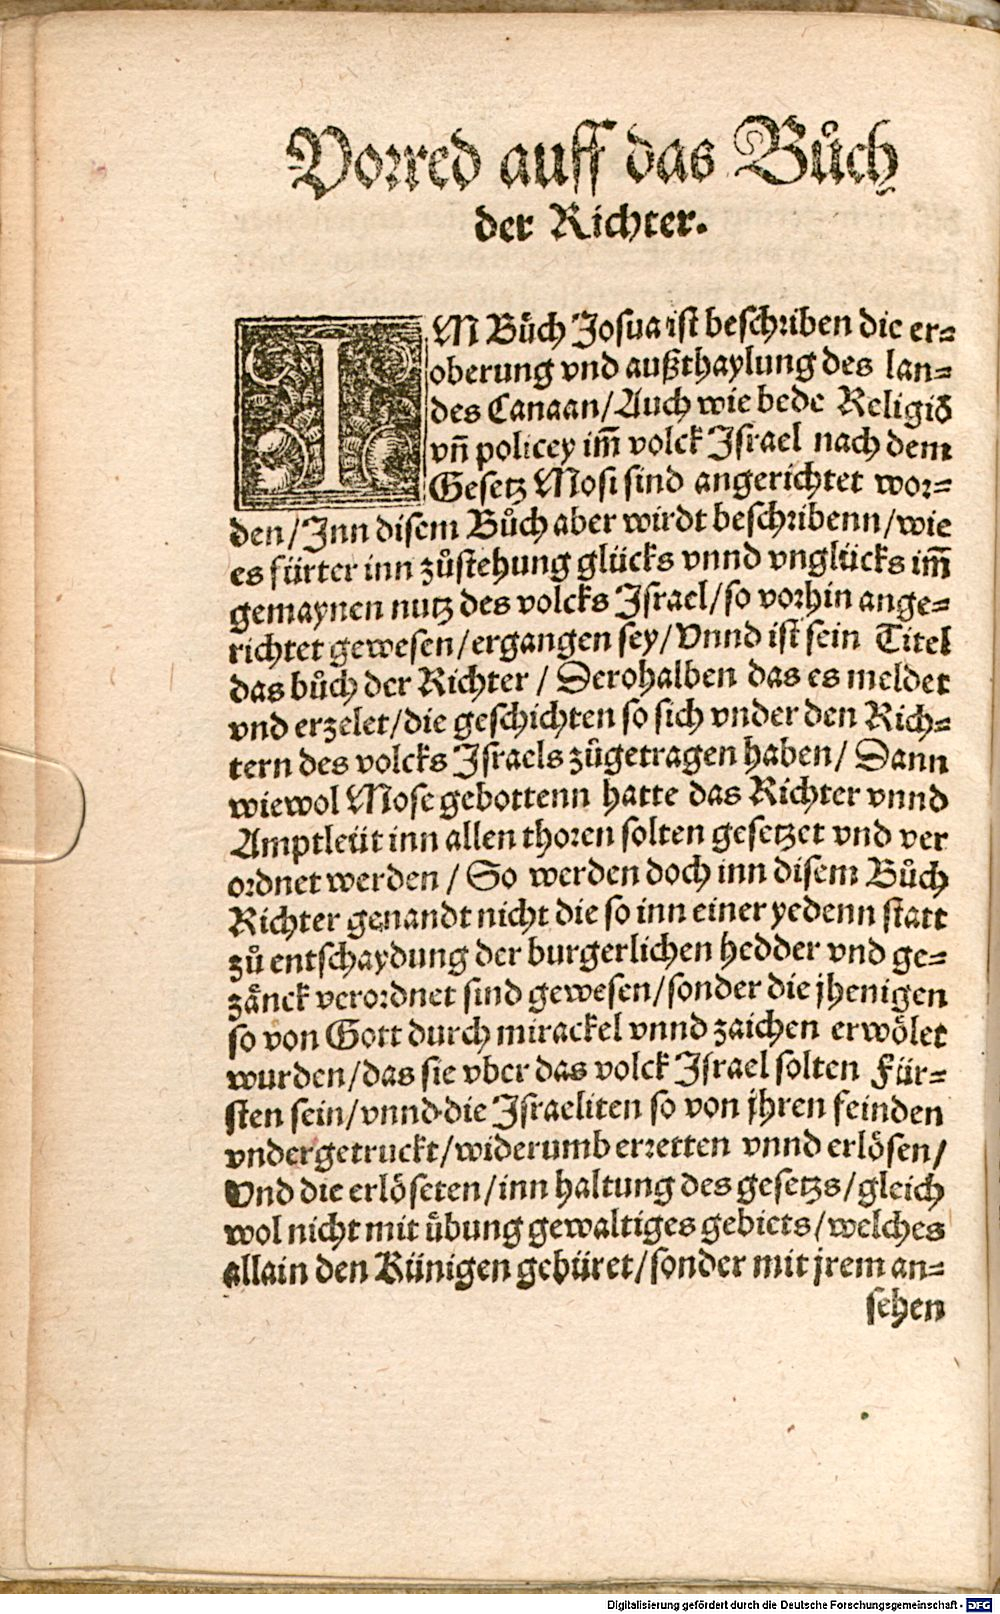 Vorred auff das Bůch
der Richter.
IM Bůch Josua ist beschriben die er=
oberung vnd außthaylung des lan=
des Canaan/ Auch wie bede Religiō
vn̄ policey im̄ volck Israel nach dem
Gesetz Mosi sind angerichtet wor=
den/ Inn disem Bůch aber wirdt beschribenn/ wie
es fürter inn zůstehung glücks vnnd vnglücks im̄
gemaynen nutz des volcks Israel/ so vorhin ange=
richtet gewesen/ ergangen sey/ Vnnd ist sein Titel
das bůch der Richter / Derohalben das es meldet
vnd erzelet/ die geschichten so sich vnder den Rich=
tern des volcks Israels zůgetragen haben/ Dann
wiewol Mose gebottenn hatte das Richter vnnd
Amptleüt inn allen thoren solten gesetzet vnd ver
ordnet werden / So werden doch inn disem Bůch
Richter genandt nicht die so inn einer yedenn statt
zů entschaydung der burgerlichen hedder vnd ge=
zånck verordnet sind gewesen/ sonder die jhenigen
so von Gott durch mirackel vnnd zaichen erwölet
wurden/ das sie vber das volck Israel solten Für=
sten sein/ vnnd die Israeliten so von jhren feinden
vndergetruckt/ widerumb erretten vnnd erlösen/
Vnd die erlöseten/ inn haltung des gesetzs/ gleich
wol nicht mit übung gewaltiges gebiets/ welches
allain den Künigen gebüret/ sonder mit jrem an=
sehen
Digitalisierung gefördert durch die Deutsche Forschungsgemeinschaft - DFG